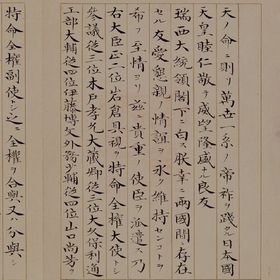 天ノ命ニ則リ萬世一系ノ帝祚ヲ踐タル日本國
天皇睦仁敬テ威望隆盛ナル良友
瑞西大統領閣下ニ白ス朕幸ニ兩國間ニ存在
セル友愛懇親ノ情誼ヲ永ク維持センコトヲ
希フノ至情ヨリ茲ニ貴重ノ使臣ヲ派遣シ乃
右大臣正二位岩倉具視ヲ特命全權大使トシ
參議從三位木戸孝允大藏卿從三位大久保利通
工部大輔從四位伊藤博文外務少輔從四位山口尚芳ヲ
特命全權副使トシ之ニ全權ヲ合與又分與シ